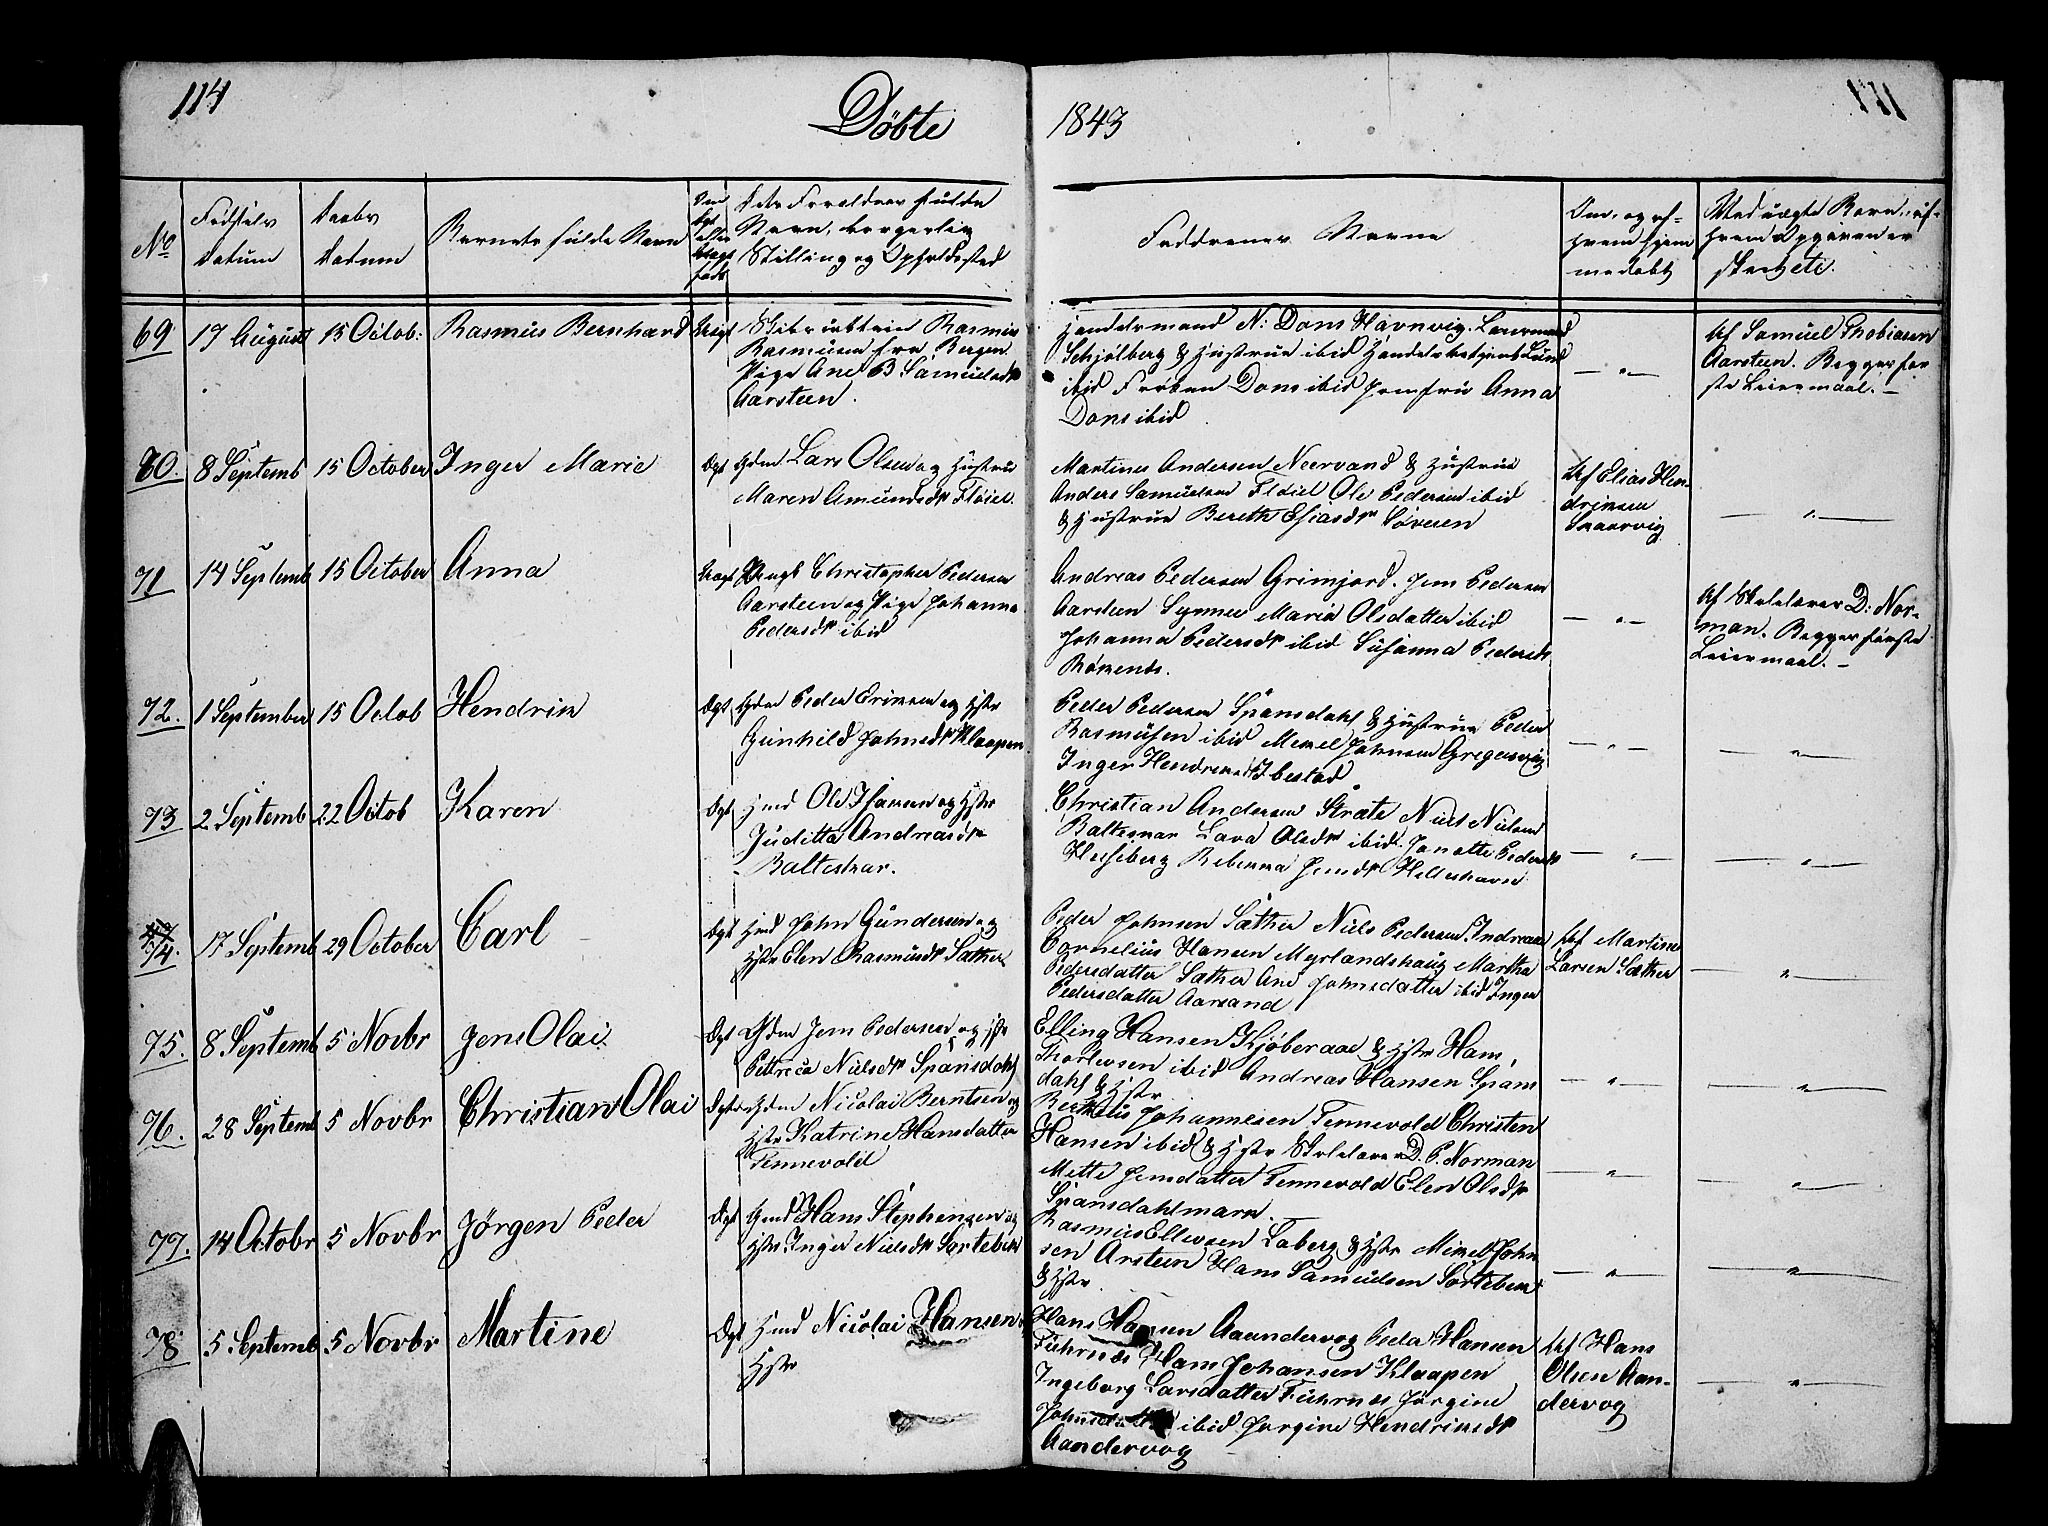 114
Döbte
1843
No
Födsels
Datum
Daabs
Datum
Barnets fulde Navn
Om
Ægt
eller
Uægt
født
Dets Forældres fulde
Navn, borgerlig
Stilling og Opholdssted
Faddrenes Navne
Om, og af
hvem hjem
medöbt
Ved uægte Börn, af
hvem Opgaven er
skeet etc.
69
17 August
15 Octob:
Rasmus Bernhard
Uægt
Rasmus
Rasmusen fra Bergen
Pige Ane B Samuelsdr
Aarsteen.
Handelsmand N: Dons Havnvig.
Schjölberg & Hustrue ibid Lund
ibid Fröken Dons ibid Jomfru Anna
Dons ibid
Af Samuel Thobiasen
Aarsteen. Begges för
ste Leiermaal.
70.
8 Septemb
15 October
Inger Marie
Ægt
Gdm. Lars Olsen og Hustru
Maren Amundsdr Flöiel.
Martines Andersen Neervand & Hustrue
Anders Samuelsen Flöiel Ole Pedersen ibid
& Hustrue Bereth Esiasdr Sövesen
Af Elias Hen-
driksen
71
14 Septemb
15 October
Anna
Uægt
Ungk Christopher Pedersen
Aarsteen og Pige Johanna
Pedersdr ibid
Andreas Pedersen Grimjord. Jens Pedersen
Aarsteen Synneve Maria Olsdatter ibid
Johanna Pedersdr ibid Susanna Pedersdr
Af Skolelærer D: Nor-
man. Begges förste
Leiermaal.
72.
1 September
15 Octob
Hendrik
Ægt
Gdm Peder Eriksen og Hstr
Gunhild Johnsdr Klaapen
Peder Pedersen Spansdahl & Hustrue Peder
Rasmusen ibid Mikel Johnsen Gregusvig
Inger Hendriksdr Ibestad
73
2 Septemb
22 Octob
Karen
Ægt
Hmd Ole Isaksen og Hstr
Juditta Andreasdr
Balteskar.
Christian Andersen Stræte Niels Nielsen
Balteskar Lava Olsdr ibid. Janette Pedersdr
Hesseberg Rebekka Jensdr Helleshavn
74.
17 Septemb
29 October
Carl
Ægt
Hmd John Gundersen og
Hstr Elen Rasmusdr Sæther
Peder Johnsen Sæther Niels Pedersen Indreaae
Cornelius Hansen Myrlandshaug Martha
Pedersdatter Sæther Ane Johnsdatter ibid Inger
Pedersdatter Aarsand
Af Martin
Larsen Sæther
75.
8 Septemb
5 Novbr
Jens Olai
Ægt
Gdm Jens Pedersen og Hstr
Petrica Nielsdr Spansdahl
Elling Hansen Kjöberaae & Hstr Hans
Thorlevsen ibid Andreas Hansen Spans
dahl & Hstr
76.
28 Septemb
5 Novbr
Christian Olai
Ægte
Gdm Nicolai Berntsen og
Hstr Katrine Hansdatter
Tennevold
Bertheus Johannesen Tennevold Christen
Hansen ibid & Hstr Skolelærer D. P. Norman
Mette Jensdatter Tennevold Elen Olsdr
Spansdahlmark
77.
14 Octobr
5 Novbr
Jörgen Peder
Ægt
Gmd Hans Stephensen og
Hstr Inger Nielsdr Sortebek
Rasmus Ellevsen Laberg & Hstr Mikel John
sen Arsteen Hans Samuelsen Sörtebek
& Hstr.
78
5 Septemb
5 Novbr
Martine
Ægt
Hmd Nicolai Hansen
Hstr
Hans Hansen Aandervog Peder Hansen
Fuhrnæs Hans Johansen Klaapen
Ingeborg Larsdatter Fuhrnes Jörgine
Johnsdatter ibid Jorgine Hendriksdr
Aandervog
Af Hans
Olsen Aan-
dervog